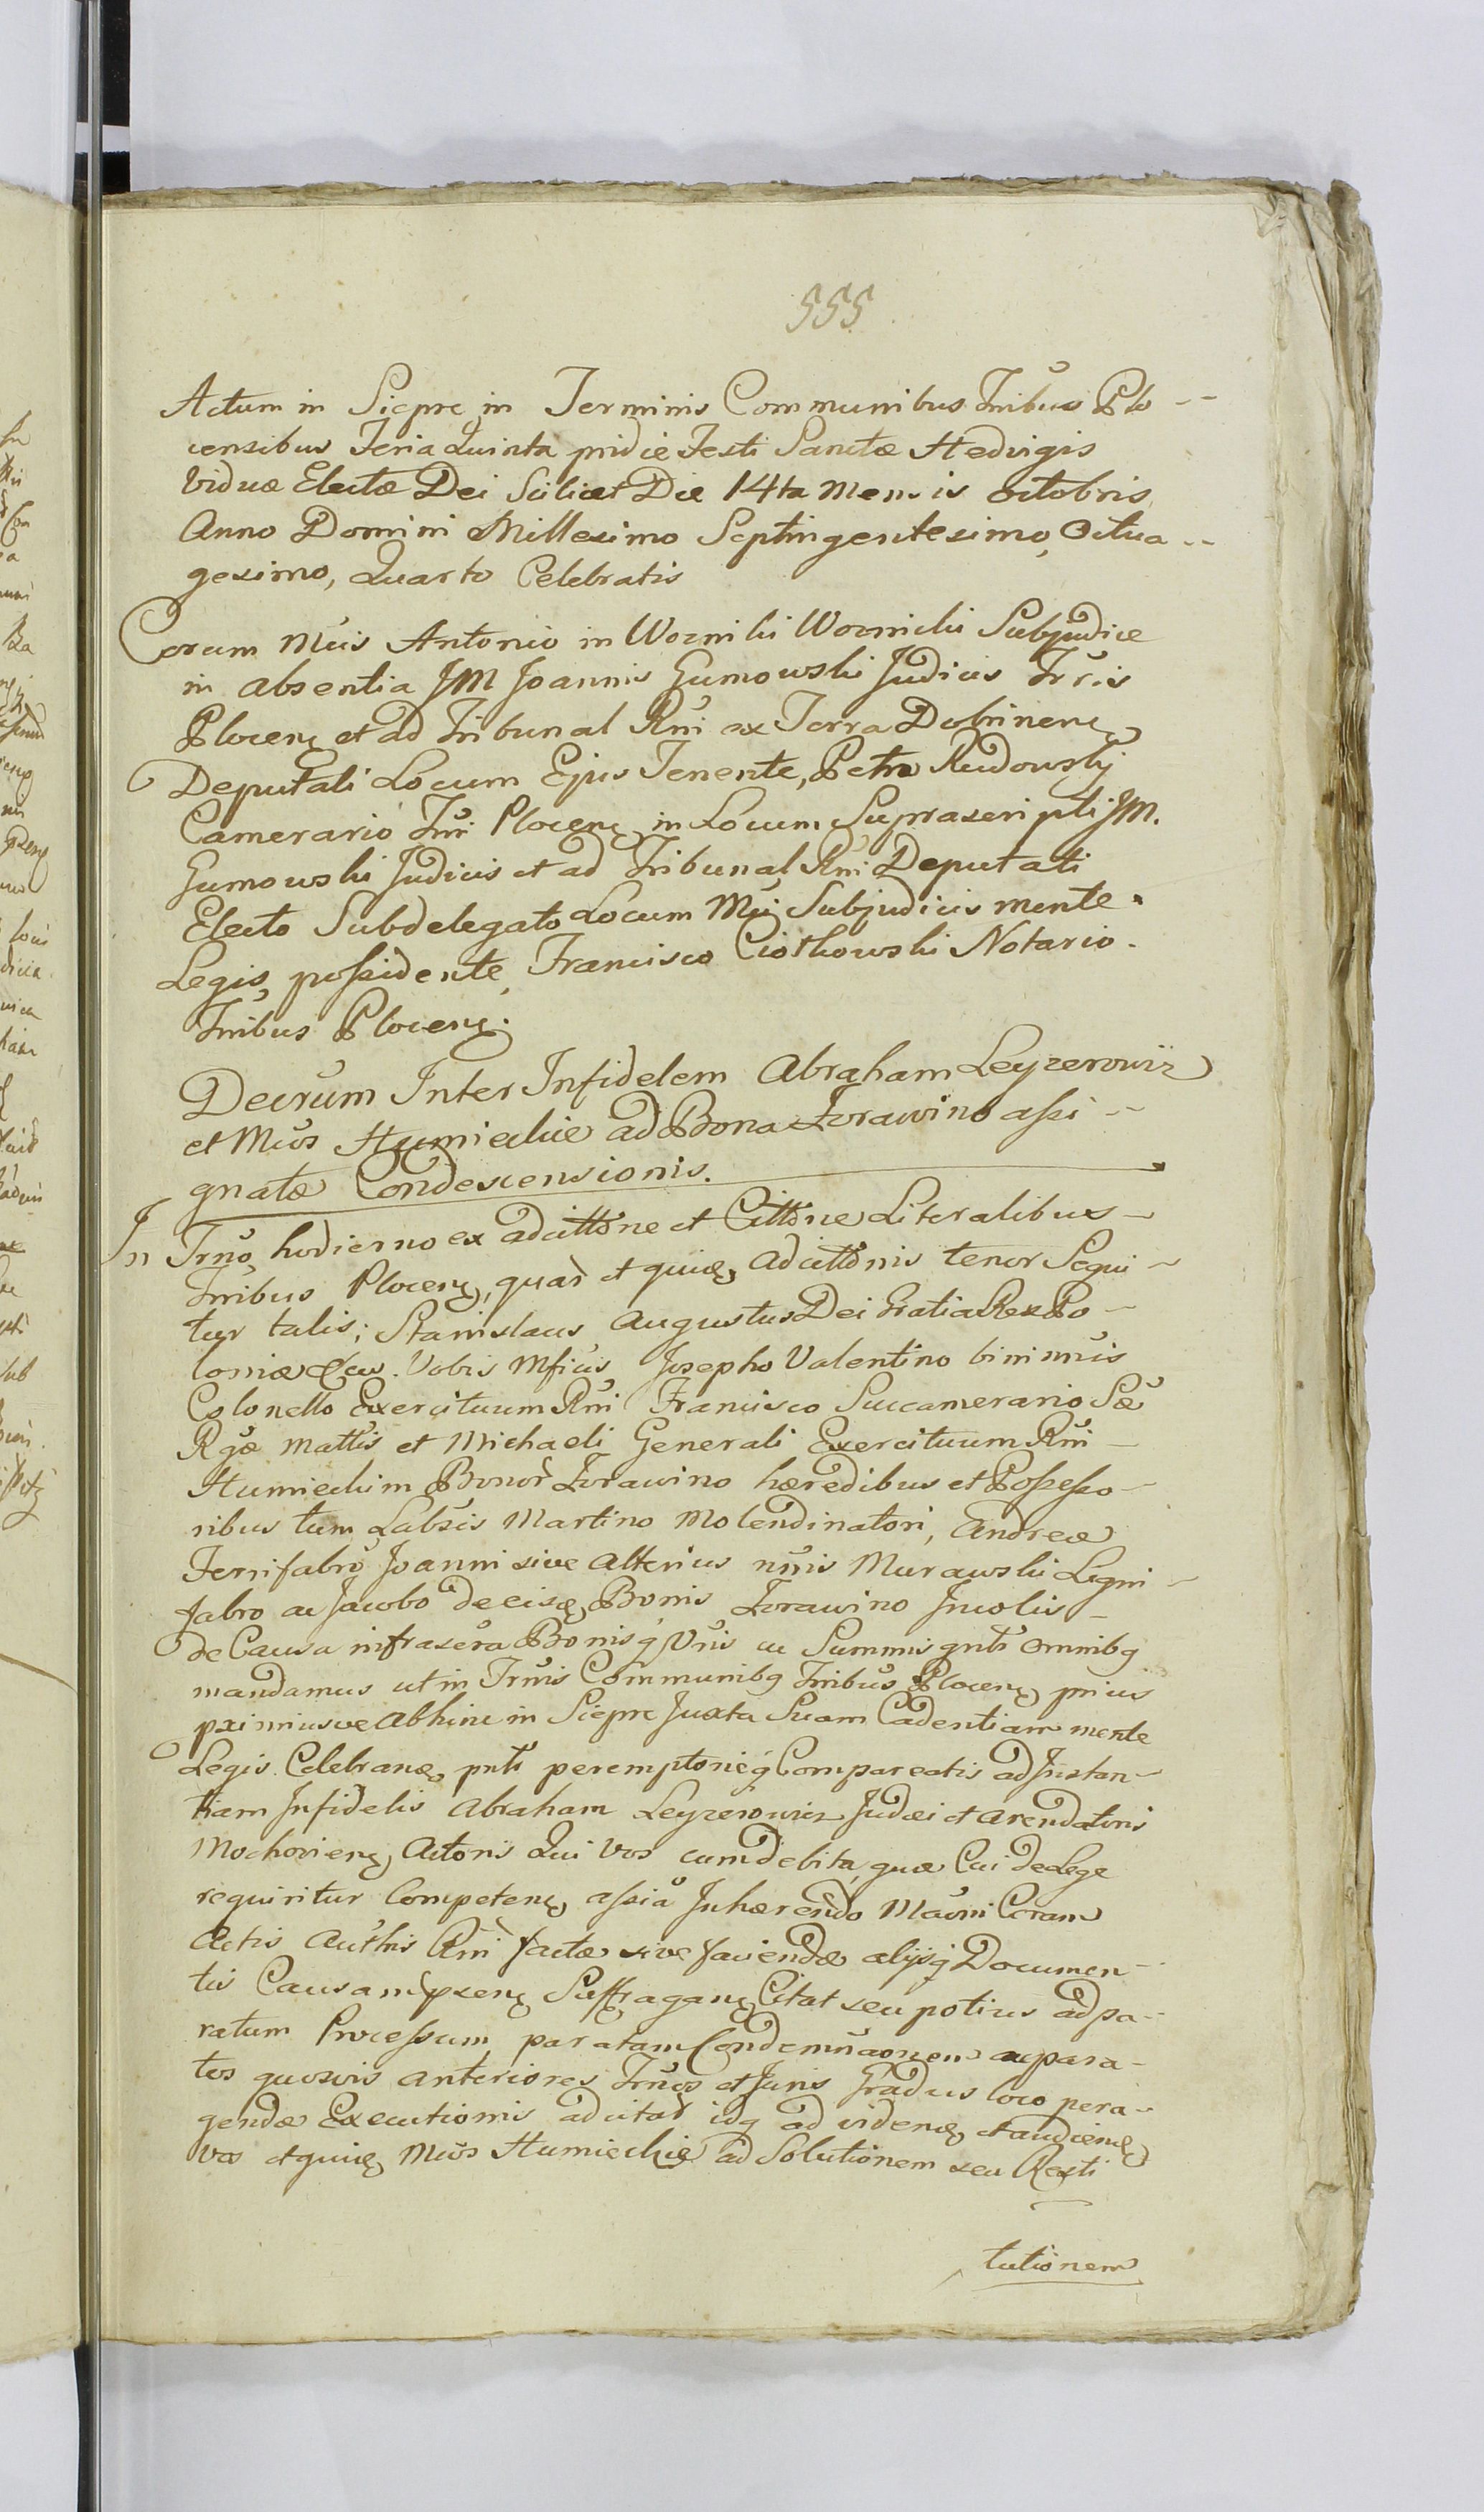 555
Actum in Siepre in Terminis Communibus Tribus Plo --
censibus Feria Quinta pridie Festi Sanctæ Hedvigis
Viduæ Electæ Dei Scilicet Die 14ta Mensis octobris
Anno Domini Millesimo Septingentesimo, Octua --
gesimo, Quarto Celebratis
Coram Mcis Antonio in Woznihi Woznichi Subjudice
in absentia JM Joannis Gumowski Judicis Tr̃ris
Plocenς et ad Tribunal Rni ex Terra Dobrinenς
Deputati Locum Ejus Tenente, Petro Rudowskj
Camerario Tr̃ri Plocenς in Locum Suprascripti JM.
Gumowski Judicis et ad Tribunal Rni Deputati
Electo Subdelegato Locum Mci Subjudicis mente
Legis, possidente, Francisco Ciothowski Notario
Tribus Plocenς.
Decrum Inter Infidelem Abraham Leyzerowiz
et Mcos Humieckie ad Bona Zorawino assi --
gnatæ Condescensionis.
In Trno, hodierno ex adcittõne et Cittõne Literalibus -
Tribus Plocenς, quar̃ et quivς, adcittõnis tenor Sequi -
tur talis; Stanislaus Augustus Dei Gratia Rex Po -
loniæ &cus. Vobis Mficis, Josepho Valentino binimis
Colonello Exercituum Rni Francisco Succamerario Sæ
Rgæ Mattis et Michaeli Generali Exercituum Rni -
Humieckim Bonor̃ Zorawino hæredibus et Possesso -
ribus tum Labsis Martino Molendinatori, Andreæ
Ferrifabro Joanni sive alterius nm̃is Murawski Ligni -
fabro ac Jacobo de eisς Bonis Zorawino Incolis -
de Causa infrascra Bonisq Vris ac Summis gntr̃ omnibq
mandamus ut in Trm̃is Communibq Tribus Plocenς prius
pximiusve abhinc in Siepre Juxta Suam Cadentiam mente
Legis Celebranς, pntr̃ peremptorieq Compareatis ad Instan -
tiam Infidelis Abraham Leyzerowicz Judæi et arendatoris
Mochoviensς Actoris Qui Vos cum debita, quæ Cui de Lege
requiritur Competenς, assia Inhærendo Mãoni Coram
Actis Auth̃is Rni factæ sive faciendæ alijsq Documen -
tis Causam pxenς Suffraganς Citat seu potius ad pa -
ratum Processum, paratam Condemnãonem acpara -
tos quosvis anteriores Trnos et Juris Gradus loco pera -
gendæ Executionis adcitat idq ad videnς, et audienς
vos et quivς Mcos Humieckie ad Solutionem seu Resti
tutionem